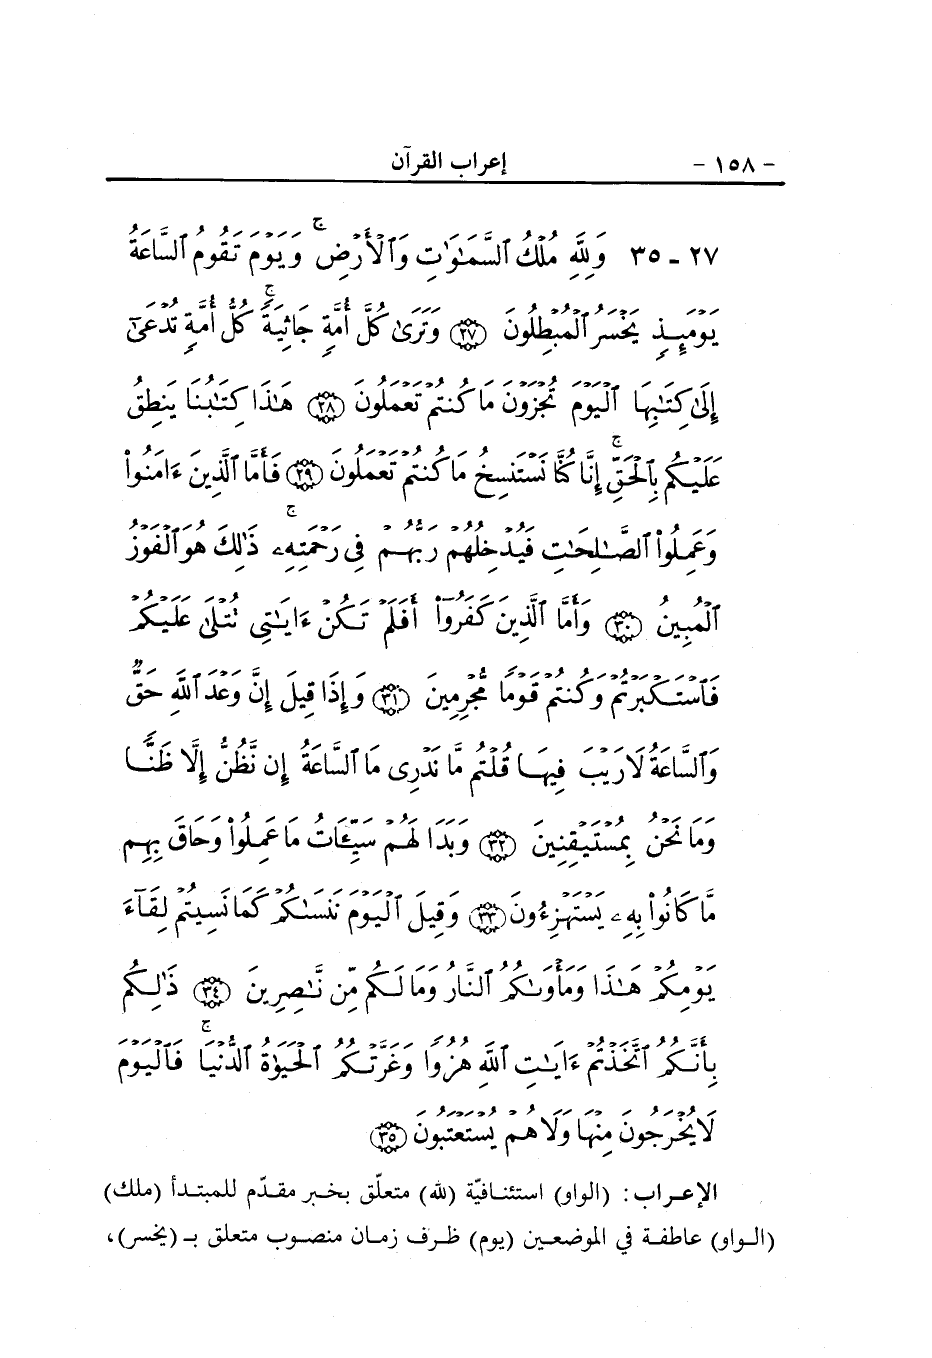 - ١٥٨ - إعراب القرآن
٢٧ - ٣٥ وَلِلَّهِ مُلْكُ ٱلسَّمَٰوَٰتِ وَٱلْأَرْضِ ۚ وَيَوْمَ تَقُومُ ٱلسَّاعَةُ
يَوْمَئِذٍ يَخْسَرُ ٱلْمُبْطِلُونَ ﴿٢٧﴾ وَتَرَىٰ كُلَّ أُمَّةٍ جَاثِيَةً ۚ كُلُّ أُمَّةٍ تُدْعَىٰٓ
إِلَىٰ كِتَٰبِهَا ٱلْيَوْمَ تُجْزَوْنَ مَا كُنتُمْ تَعْمَلُونَ ﴿٢٨﴾ هَٰذَا كِتَٰبُنَا يَنطِقُ
عَلَيْكُم بِٱلْحَقِّ ۚ إِنَّا كُنَّا نَسْتَنسِخُ مَا كُنتُمْ تَعْمَلُونَ ﴿٢٩﴾ فَأَمَّا ٱلَّذِينَ ءَامَنُوا۟
وَعَمِلُوا۟ ٱلصَّٰلِحَٰتِ فَيُدْخِلُهُمْ رَبُّهُمْ فِى رَحْمَتِهِۦ ۚ ذَٰلِكَ هُوَ ٱلْفَوْزُ
ٱلْمُبِينُ ﴿٣٠﴾ وَأَمَّا ٱلَّذِينَ كَفَرُوٓا۟ أَفَلَمْ تَكُنْ ءَايَٰتِى تُتْلَىٰ عَلَيْكُمْ
فَٱسْتَكْبَرْتُمْ وَكُنتُمْ قَوْمًا مُّجْرِمِينَ ﴿٣١﴾ وَإِذَا قِيلَ إِنَّ وَعْدَ ٱللَّهِ حَقٌّ
وَٱلسَّاعَةُ لَا رَيْبَ فِيهَا قُلْتُم مَّا نَدْرِى مَا ٱلسَّاعَةُ إِن نَّظُنُّ إِلَّا ظَنًّا
وَمَا نَحْنُ بِمُسْتَيْقِنِينَ ﴿٣٢﴾ وَبَدَا لَهُمْ سَيِّـَٔاتُ مَا عَمِلُوا۟ وَحَاقَ بِهِم
مَّا كَانُوا۟ بِهِۦ يَسْتَهْزِءُونَ ﴿٣٣﴾ وَقِيلَ ٱلْيَوْمَ نَنسَىٰكُمْ كَمَا نَسِيتُمْ لِقَآءَ
يَوْمِكُمْ هَٰذَا وَمَأْوَىٰكُمُ ٱلنَّارُ وَمَا لَكُم مِّن نَّٰصِرِينَ ﴿٣٤﴾ ذَٰلِكُم
بِأَنَّكُمُ ٱتَّخَذْتُمْ ءَايَٰتِ ٱللَّهِ هُزُوًا وَغَرَّتْكُمُ ٱلْحَيَوٰةُ ٱلدُّنْيَا ۚ فَٱلْيَوْمَ
لَا يُخْرَجُونَ مِنْهَا وَلَا هُمْ يُسْتَعْتَبُونَ ﴿٣٥﴾
الإعـراب: (الواو) استئنـافيّة (لله) متعلّق بخـبر مقـدّم للمبتـدأ (ملك)
(الـواو) عاطفـة في الموضعـين (يوم) ظـرف زمـان منصـوب متعلق بـ (يخسر)،